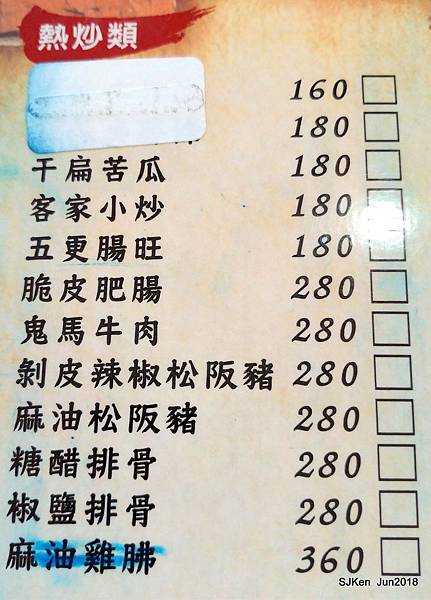 熱炒類
160
180
干扁苦瓜 180
客家小炒 180
五更腸旺 180
脆皮肥腸 280
鬼馬牛肉 280
剝皮辣椒松阪豬 280
麻油松阪豬 280
糖醋排骨 280
椒鹽排骨 280
麻油雞胇 360
SJKen Jun2018